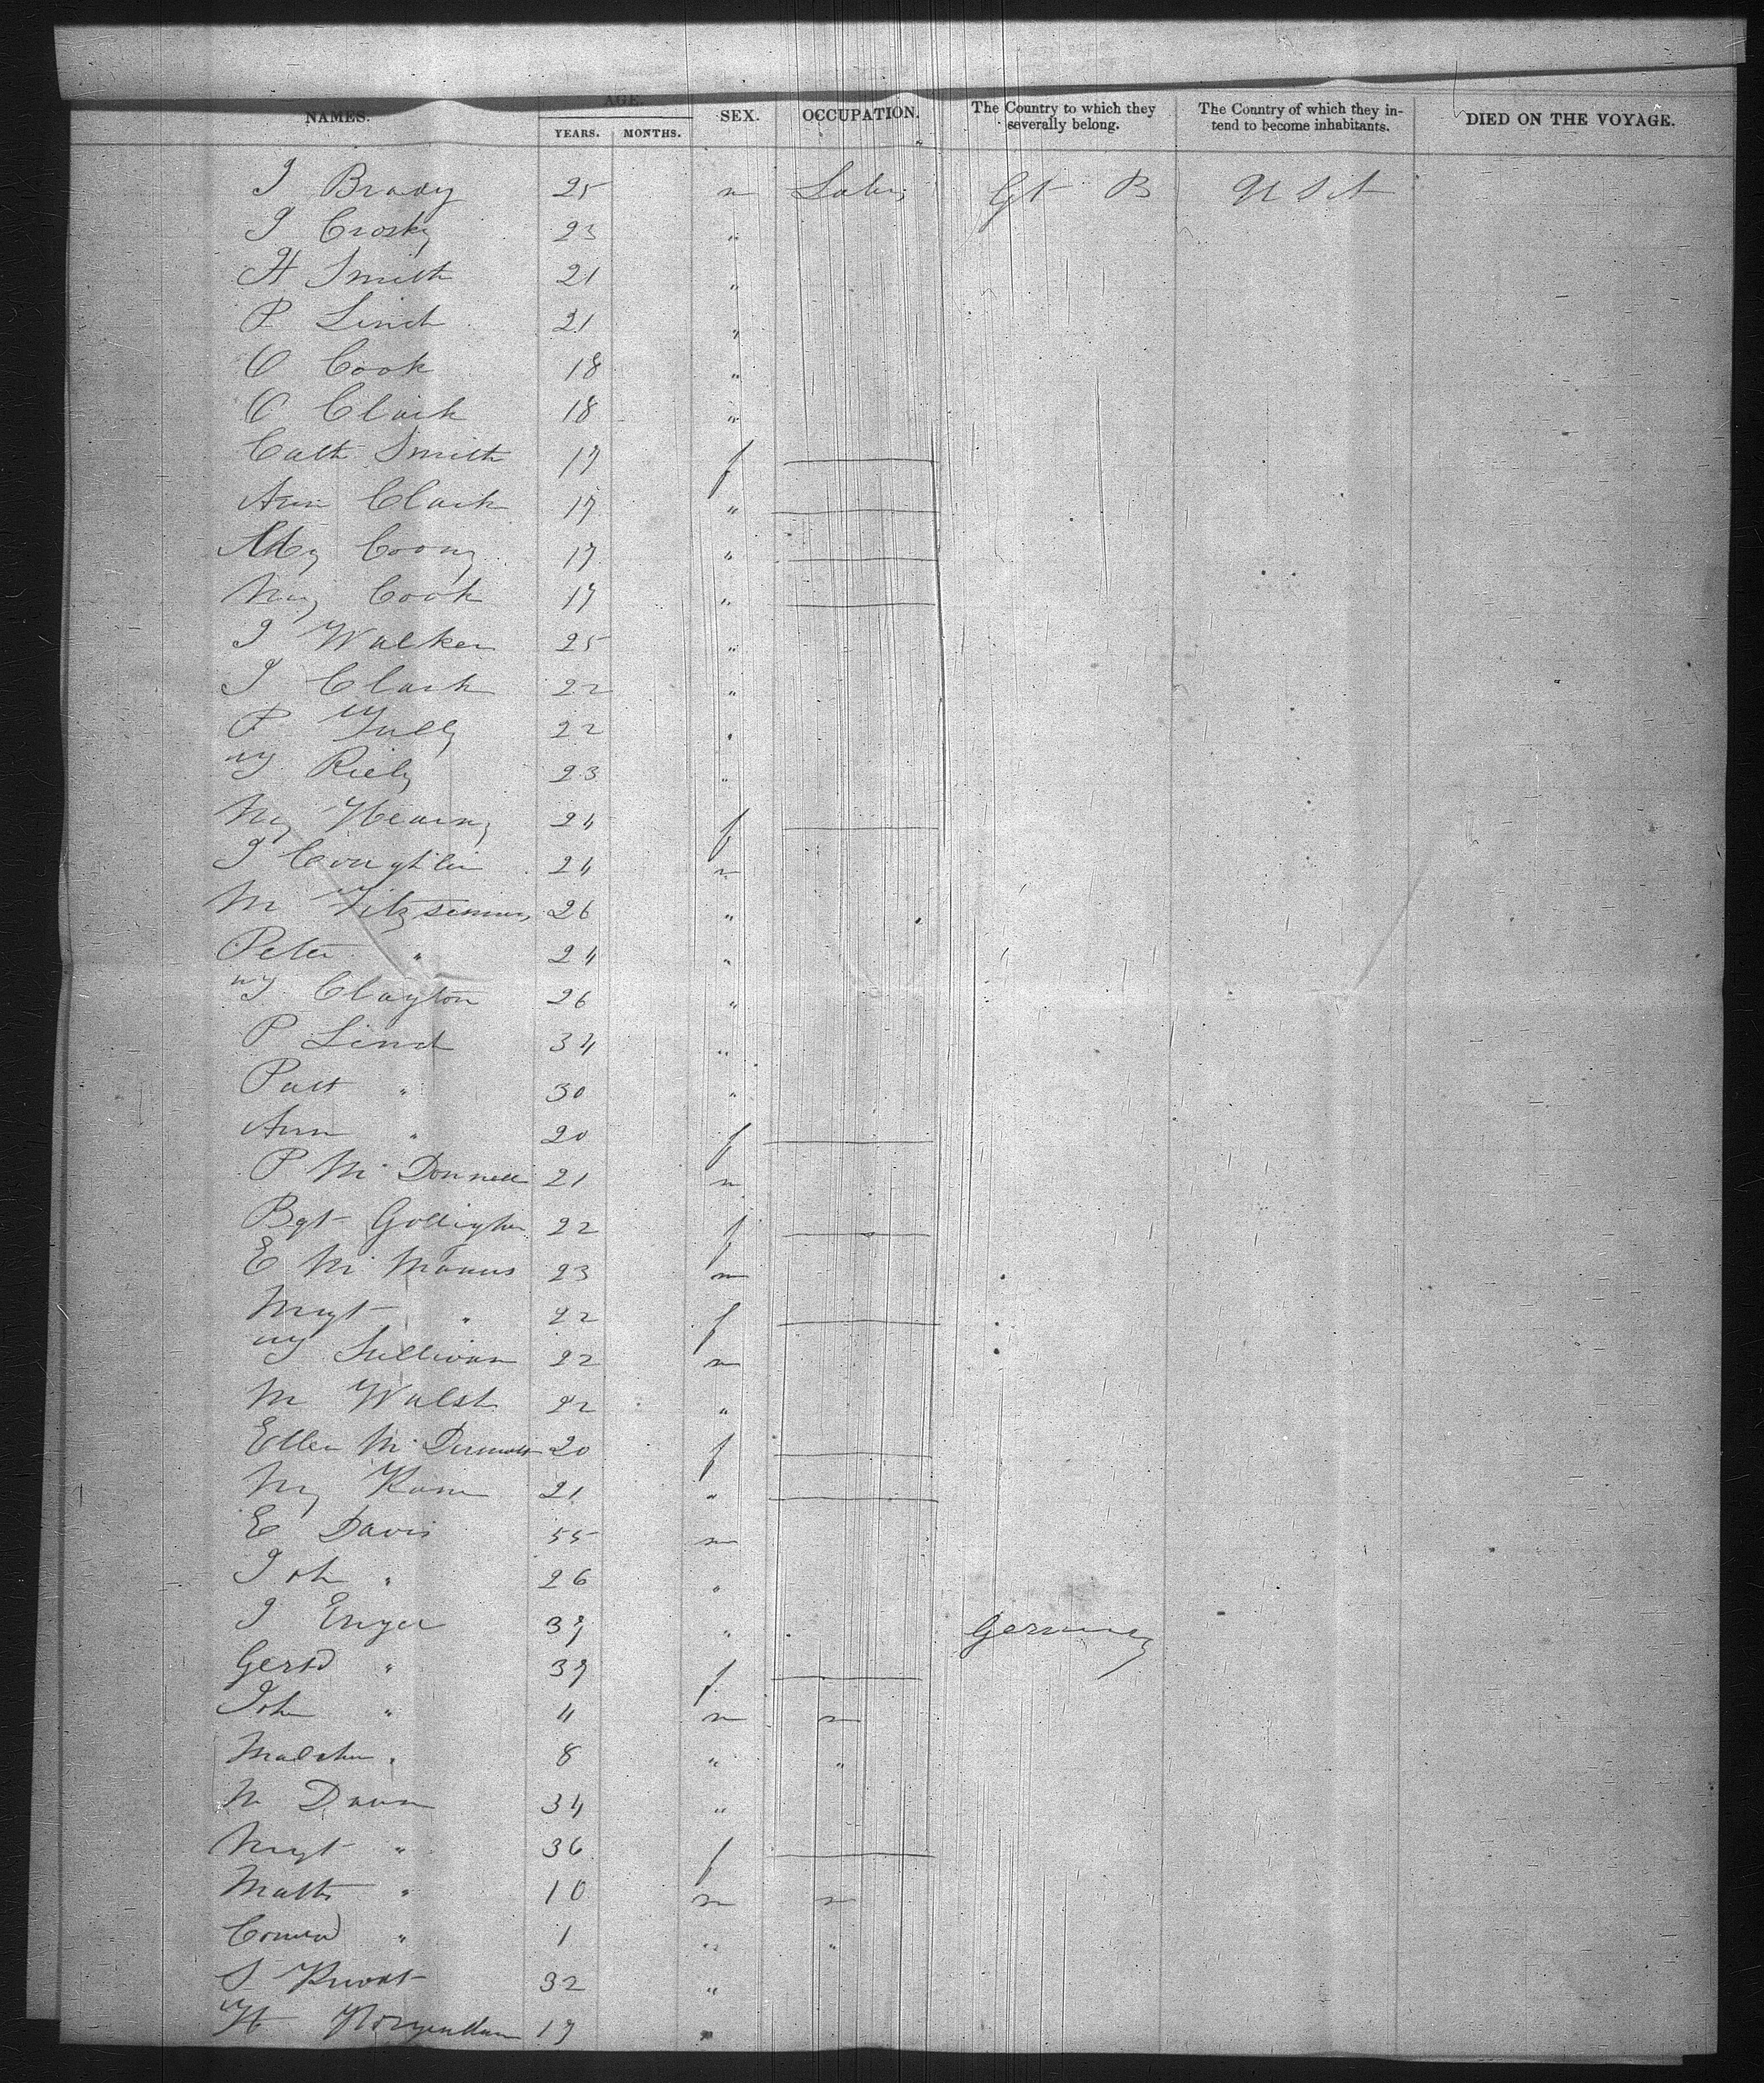 NAMES. AGE. YEARS. MONTHS. SEX. OCCUPATION. The Country to which they severally belong. The Country of which they intend to become inhabitants. DIED ON THE VOYAGE.
J Brady 25 m Gt B U S A
J Crosby 23 "
H Smith 21 "
P Linch 21 "
O Cook 18 "
O Clark 18 "
Cath Smith 17 f
Ann Clark 17 "
17 "
Cook 17 "
J Walker 25 "
J Clark 22 "
P Tully 22 "
T Riely 23 "
My 24 f
J Coughlin 24 m
M Fitzsimmons 26 "
Peter " 24 "
T Clayton 26 "
P Linch 34 "
Patt " 30 "
Ann " 20 f
P McDonnell 21 m
Bgt 22 f
E McManus 23 m
Mgt " 22 f
T Sullivan 22 m
M Walsh 22 "
Ellen McDermott 20 f
My Kane 21 "
E Davis 55 m
Joh " 26 "
J 37 " Germany
Gertd " 37 f
Joh " 11 m
" 8 " "
M 34 "
Mgt " 36 f
Matts " 10 m
Conrad " 1 " "
S 32 "
H 17 "